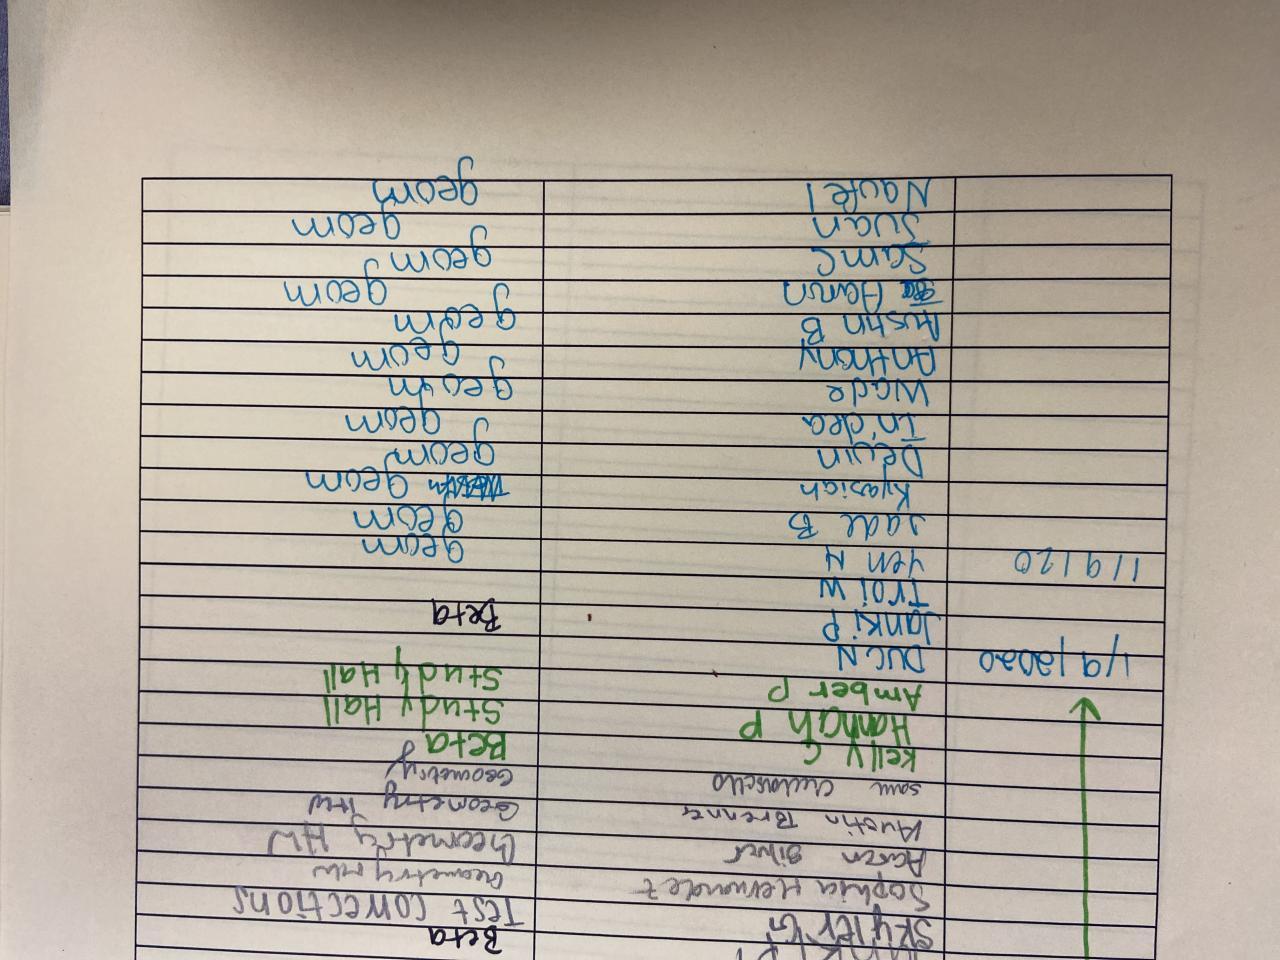 Beta
Skyler G Test corrections
Sophia Hernandez Geometry HW
Aaron Silver Geometry HW
Austin Brenner Geometry HW
Sam Geometry
Kelly C Beta
Hannah P Study Hall
Amber P Study Hall
1/9/2020 Duc N
Janki P Beta
Troi W
1/9/20 Yen N geom
Jade B geom
Kyasiah geom
Devin geom
In'dea geom
Wade geom
Anthony geom
Austin B geom
Aaron geom
Sam C geom
Juan geom
Naufel geom